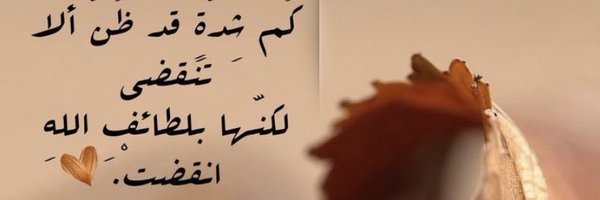 كم شِدة قد ظن ألا
تنقضى
لكنّها بلطائفِ اللهِ
انقضتْ.